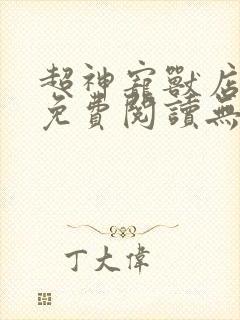 超神寵獸店
免費閱讀無
丁大偉